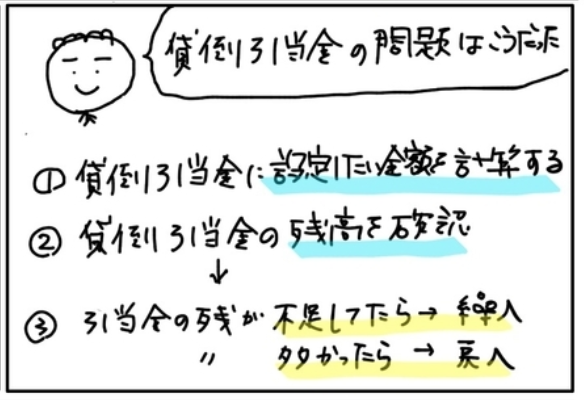 貸倒引当金の問題はこうだった
① 貸倒引当金に設定したい金額を計算する
② 貸倒引当金の残高を確認
↓
③ 引当金の残が不足してたら→繰入
〃 多かったら→戻入